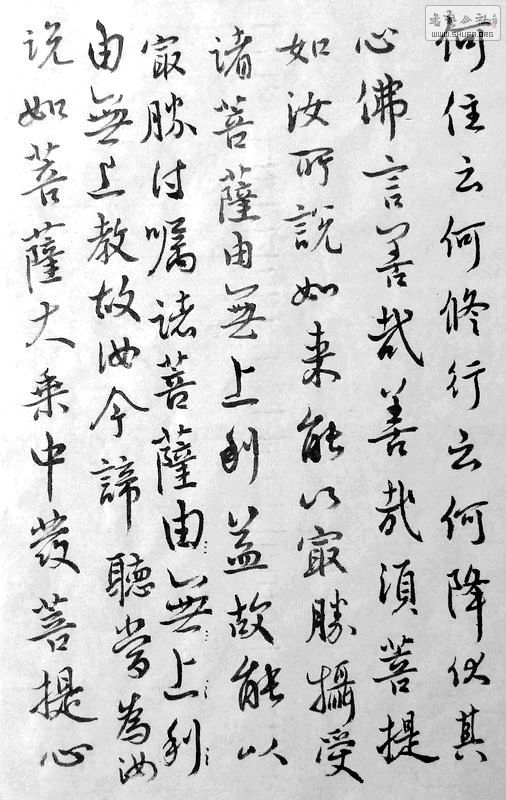 何住云何修行云何降伏其
心佛言善哉善哉須菩提
如汝所說如来能以㝡勝攝受
諸菩薩由無上利益故能以
㝡勝付嘱諸菩薩由無上利
由無上教故汝今諦聽當為汝
说如菩薩大乘中發菩提心
WWW.SHUFA.ORG